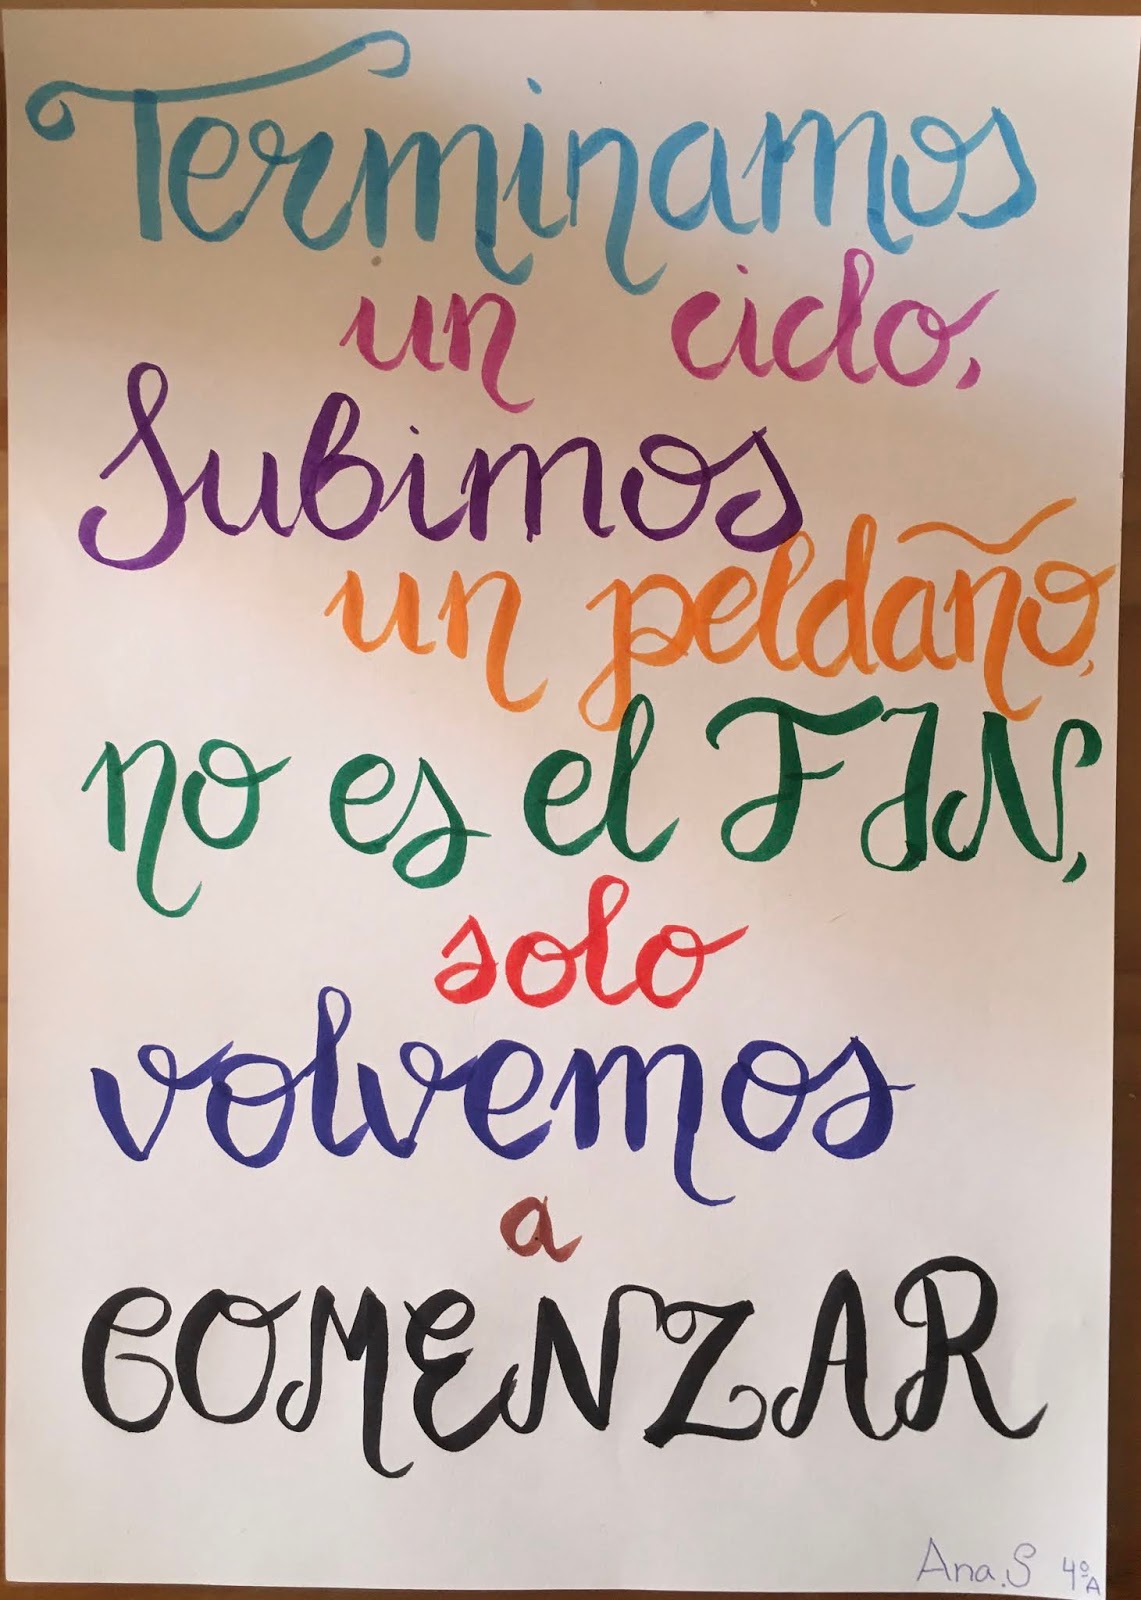 Terminamos
un ciclo,
Subimos
un peldaño,
no es el FIN,
solo
volvemos
a
COMENZAR
Ana.S 4ºA